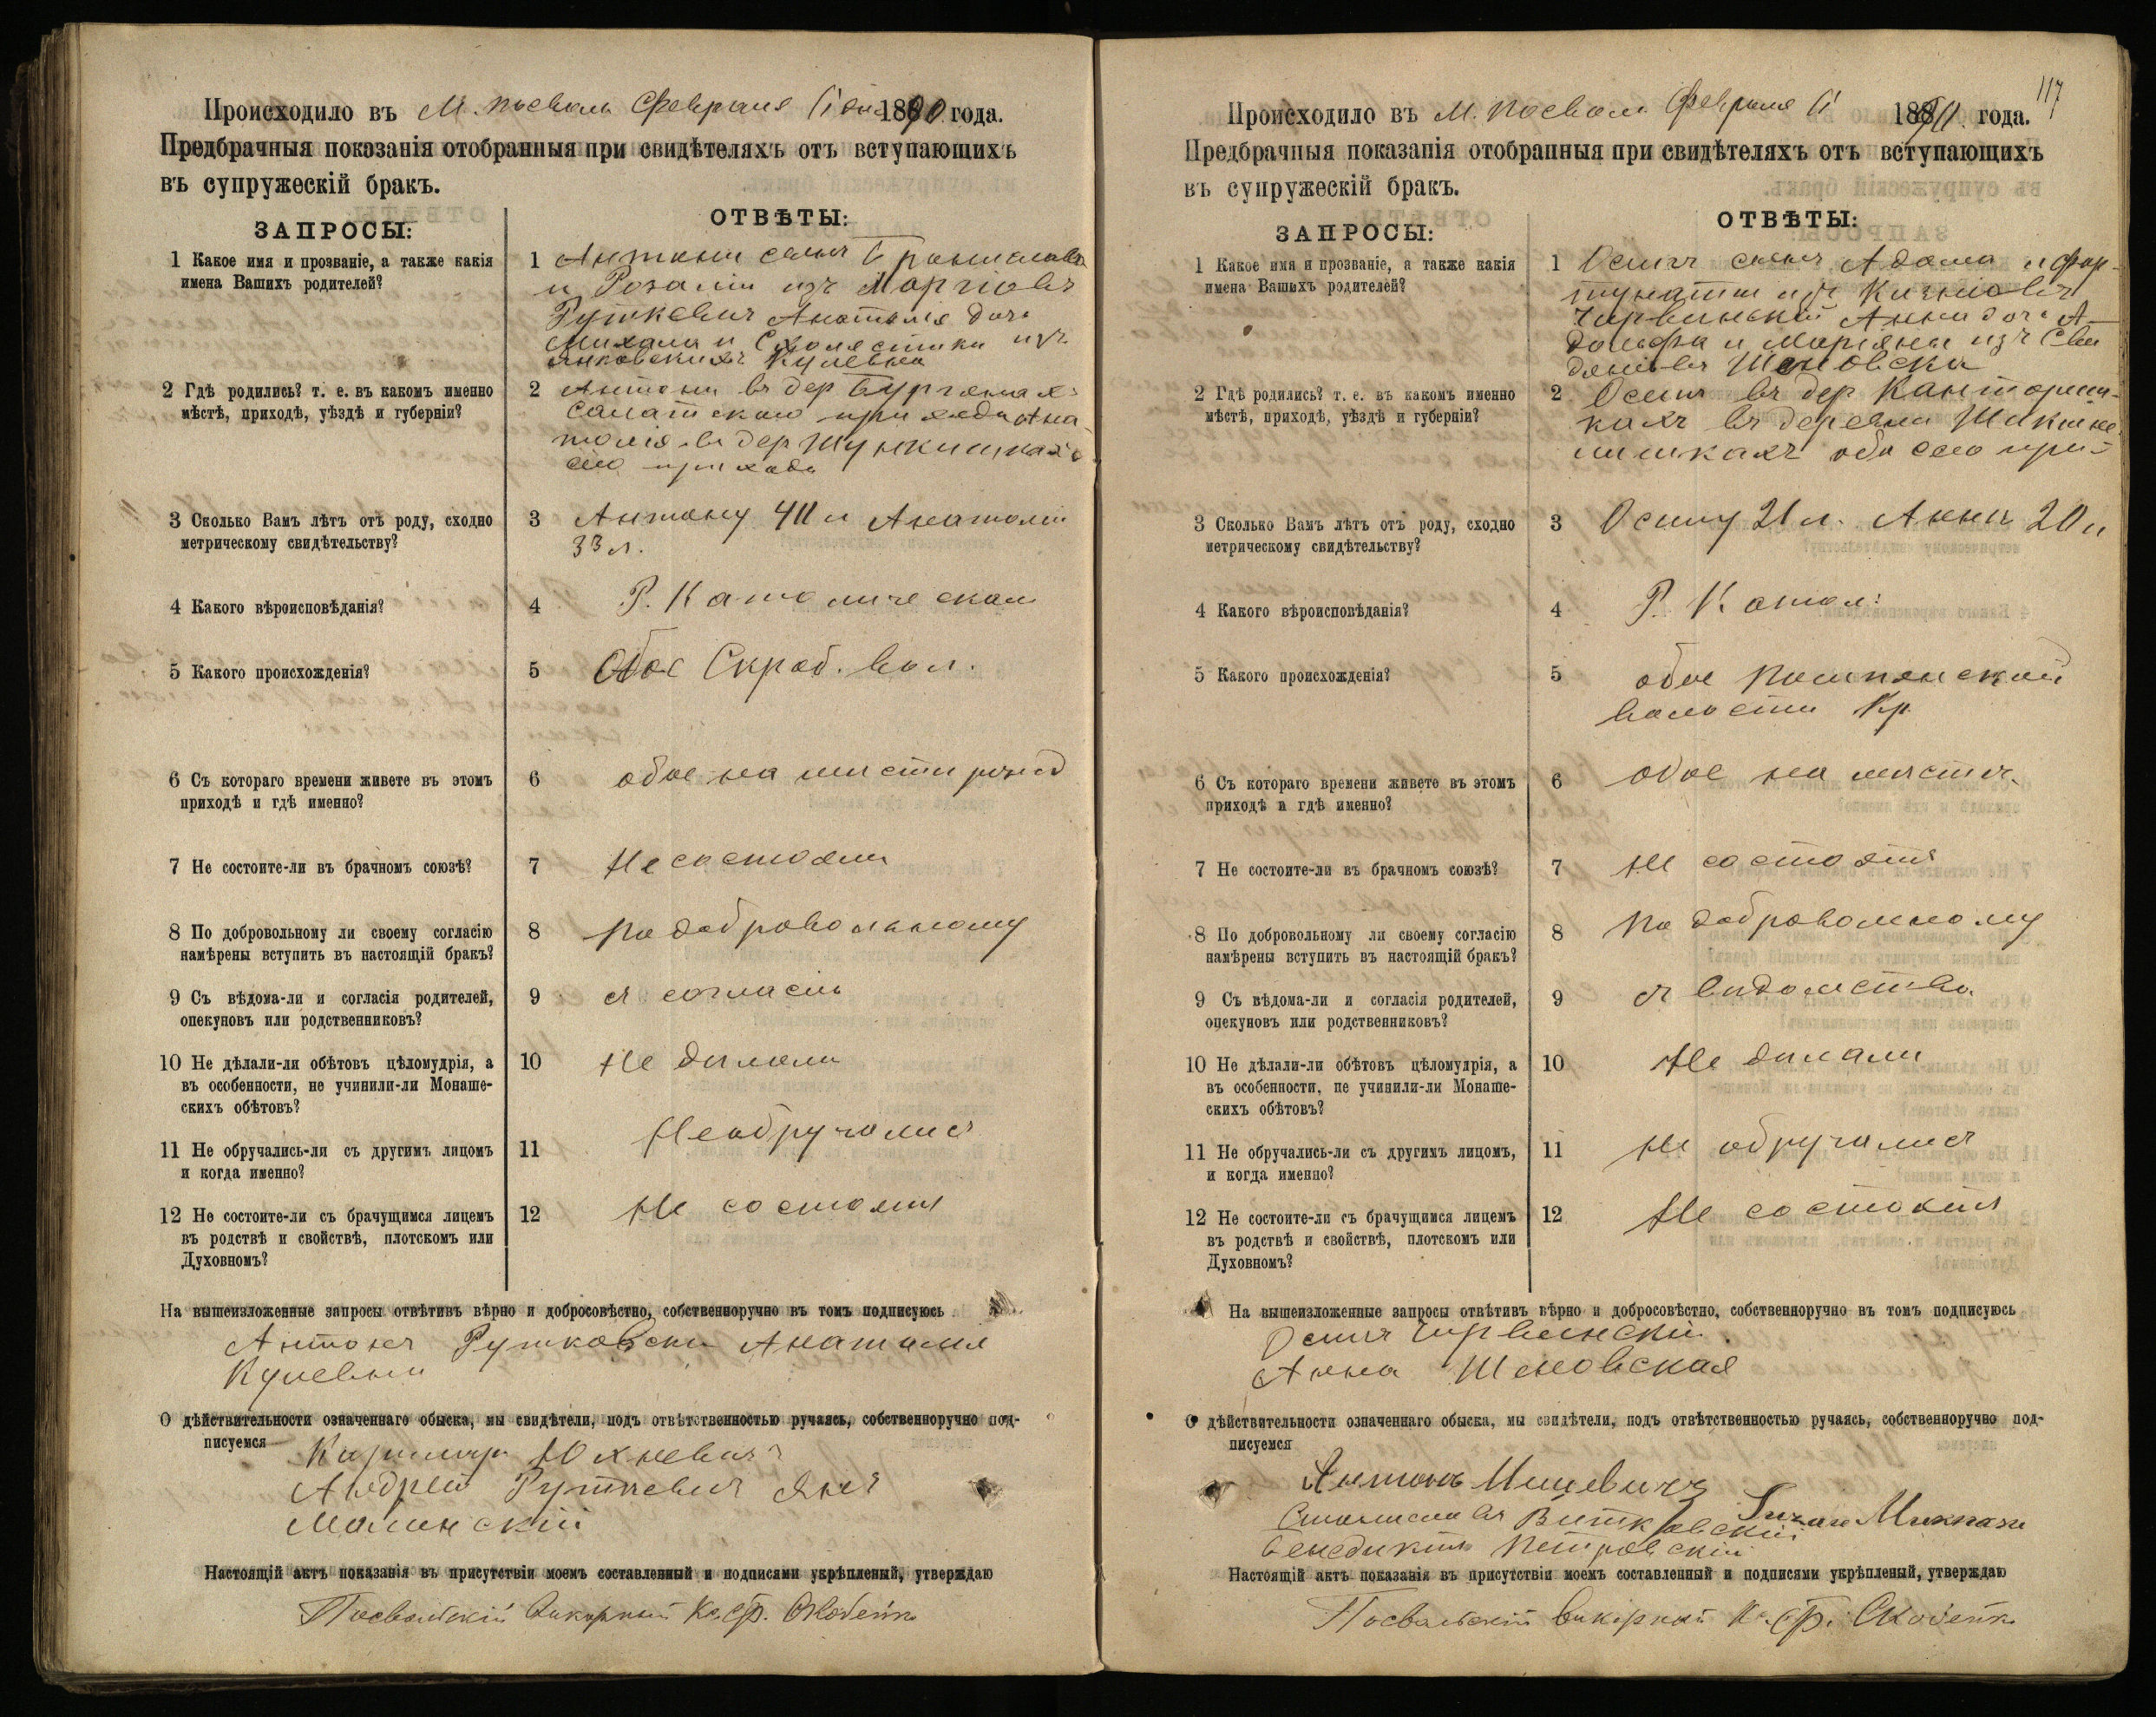 Происходило въ М. Посволь Февраля 6 дня 1890 года.
Предбрачныя показанія отобранныя при свидѣтеляхъ отъ вступающихъ
въ супружескій бракъ.
ЗАПРОСЫ:
ОТВѢТЫ:
1 Какое имя и прозваніе, а также какія
имена Вашихъ родителей?
1 Антони сынъ Бронислава
и Розаліи изъ
Руткевич Анатолія дочь
Михала и Схоластики изъ
Янковскихъ Кулевна
2 Гдѣ родились? т. е. въ какомъ именно
мѣстѣ, приходѣ, уѣздѣ и губерніи?
2 Антони въ дер
Салатскаго прихода Ана-
толія въ дер
сего прихода
3 Сколько Вамъ лѣтъ отъ роду, сходно
метрическому свидѣтельству?
3 Антону 40 л Анатоліи
33 л.
4 Какого вѣроисповѣданія?
4 Р. Католическаго
5 Какого происхожденія?
5 Обое Скроб. вол.
6 Съ котораго времени живете въ этомъ
приходѣ и гдѣ именно?
6 обое на мисти
7 Не состоите-ли въ брачномъ союзѣ?
7 Не состояли
8 По добровольному ли своему согласію
намѣрены вступить въ настоящій бракъ?
8 По добровольному
9 Съ вѣдома-ли и согласія родителей,
опекуновъ или родственниковъ?
9 съ согласія
10 Не дѣлали-ли обѣтовъ цѣломудрія, а
въ особенности, не учинили-ли Монаше-
скихъ обѣтовъ?
10 Не дилали
11 Не обручались-ли съ другимъ лицомъ
и когда именно?
11 Необручалися
12 Не состоите-ли съ брачущимся лицемъ
въ родствѣ и свойствѣ, плотскомъ или
Духовномъ?
12 Не состоятъ
На вышеизложенные запросы отвѣтивъ вѣрно и добросовѣстно, собственноручно въ томъ подписуюсь
Антонъ Рутковски Анатолия
Кулевна
О дѣйствительности означеннаго обыска, мы свидѣтели, подъ отвѣтственностью ручаясь, собственноручно под-
писуемся
Казимир Юхневичъ
Андрей Руткевич Янъ
Малинскій
Настоящій актъ показанія въ присутствіи моемъ составленный и подписями укрѣпленый, утверждаю
Посвольскій Викарный Кс. Ф. Скобейко
117
Происходило въ М. Посволь Февраля 6 1890 года.
Предбрачныя показанія отобранныя при свидѣтеляхъ отъ вступающихъ
въ супружескій бракъ.
ЗАПРОСЫ:
ОТВѢТЫ:
1 Какое имя и прозваніе, а также какія
имена Вашихъ родителей?
1 Осипъ сынъ Адама и Фор-
тунаты изъ
Чирвинскій Анна дочь А-
дольфа и Маріяны изъ Сви
Шеновска
2 Гдѣ родились? т. е. въ какомъ именно
мѣстѣ, приходѣ, уѣздѣ и губерніи?
2 Осипъ въ дер
въ деревни
обо сего при-
3 Сколько Вамъ лѣтъ отъ роду, сходно
метрическому свидѣтельству?
3 Осипу 21 л. Анни 20 л
4 Какого вѣроисповѣданія?
4 Р. Катол:
5 Какого происхожденія?
5 обое
волости Кр.
6 Съ котораго времени живете въ этомъ
приходѣ и гдѣ именно?
6 Обое на мисти
7 Не состоите-ли въ брачномъ союзѣ?
7 Не состоятъ
8 По добровольному ли своему согласію
намѣрены вступить въ настоящій бракъ?
8 По добровольному
9 Съ вѣдома-ли и согласія родителей,
опекуновъ или родственниковъ?
9 съ видомства
10 Не дѣлали-ли обѣтовъ цѣломудрія, а
въ особенности, не учинили-ли Монаше-
скихъ обѣтовъ?
10 Не дилали
11 Не обручались-ли съ другимъ лицомъ,
и когда именно?
11 Не обручалися
12 Не состоите-ли съ брачущимся лицемъ
въ родствѣ и свойствѣ, плотскомъ или
Духовномъ?
12 Не состоятъ
На вышеизложенные запросы отвѣтивъ вѣрно и добросовѣстно, собственноручно въ томъ подписуюсь
Осипъ Чирвинскій.
Анна Шеновская
О дѣйствительности означеннаго обыска, мы свидѣтели, подъ отвѣтственностью ручаясь, собственноручно под-
писуемся
Антонъ Мицевичъ
Станиславъ Витковскій
Бенедиктъ Петровскій
Настоящій актъ показанія въ присутствіи моемъ составленный и подписями укрѣпленый, утверждаю
Посвольскій Викарный Кс. Ф. Скобейко